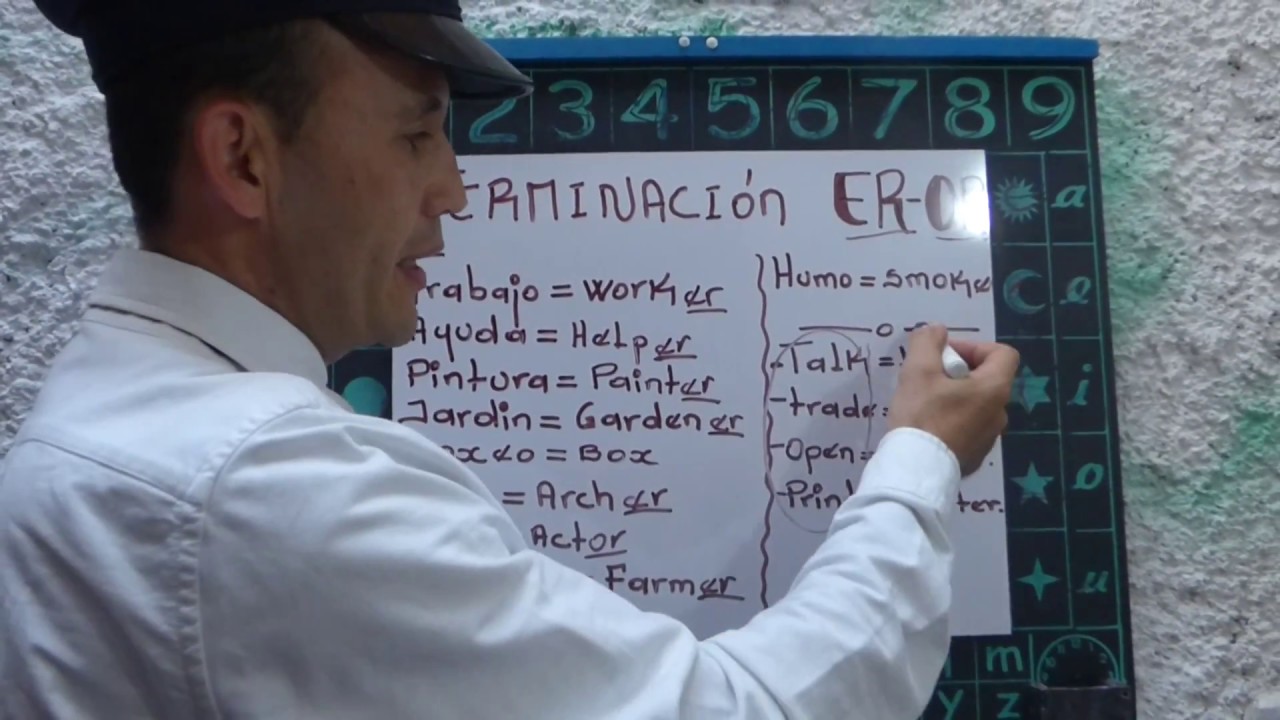 2 3 4 5 6 7 8 9
ERMINACIÓn ER-O
rabajo = Worker
Ayuda = Helper
Pintura = Painter
Jardin = Gardener
oxeo = Box
= Archer
Actor
Farmer
Humo = Smoke
-Talk =
-trade =
-Open =
-Prin ter.
a
e
i
o
u
m
y z